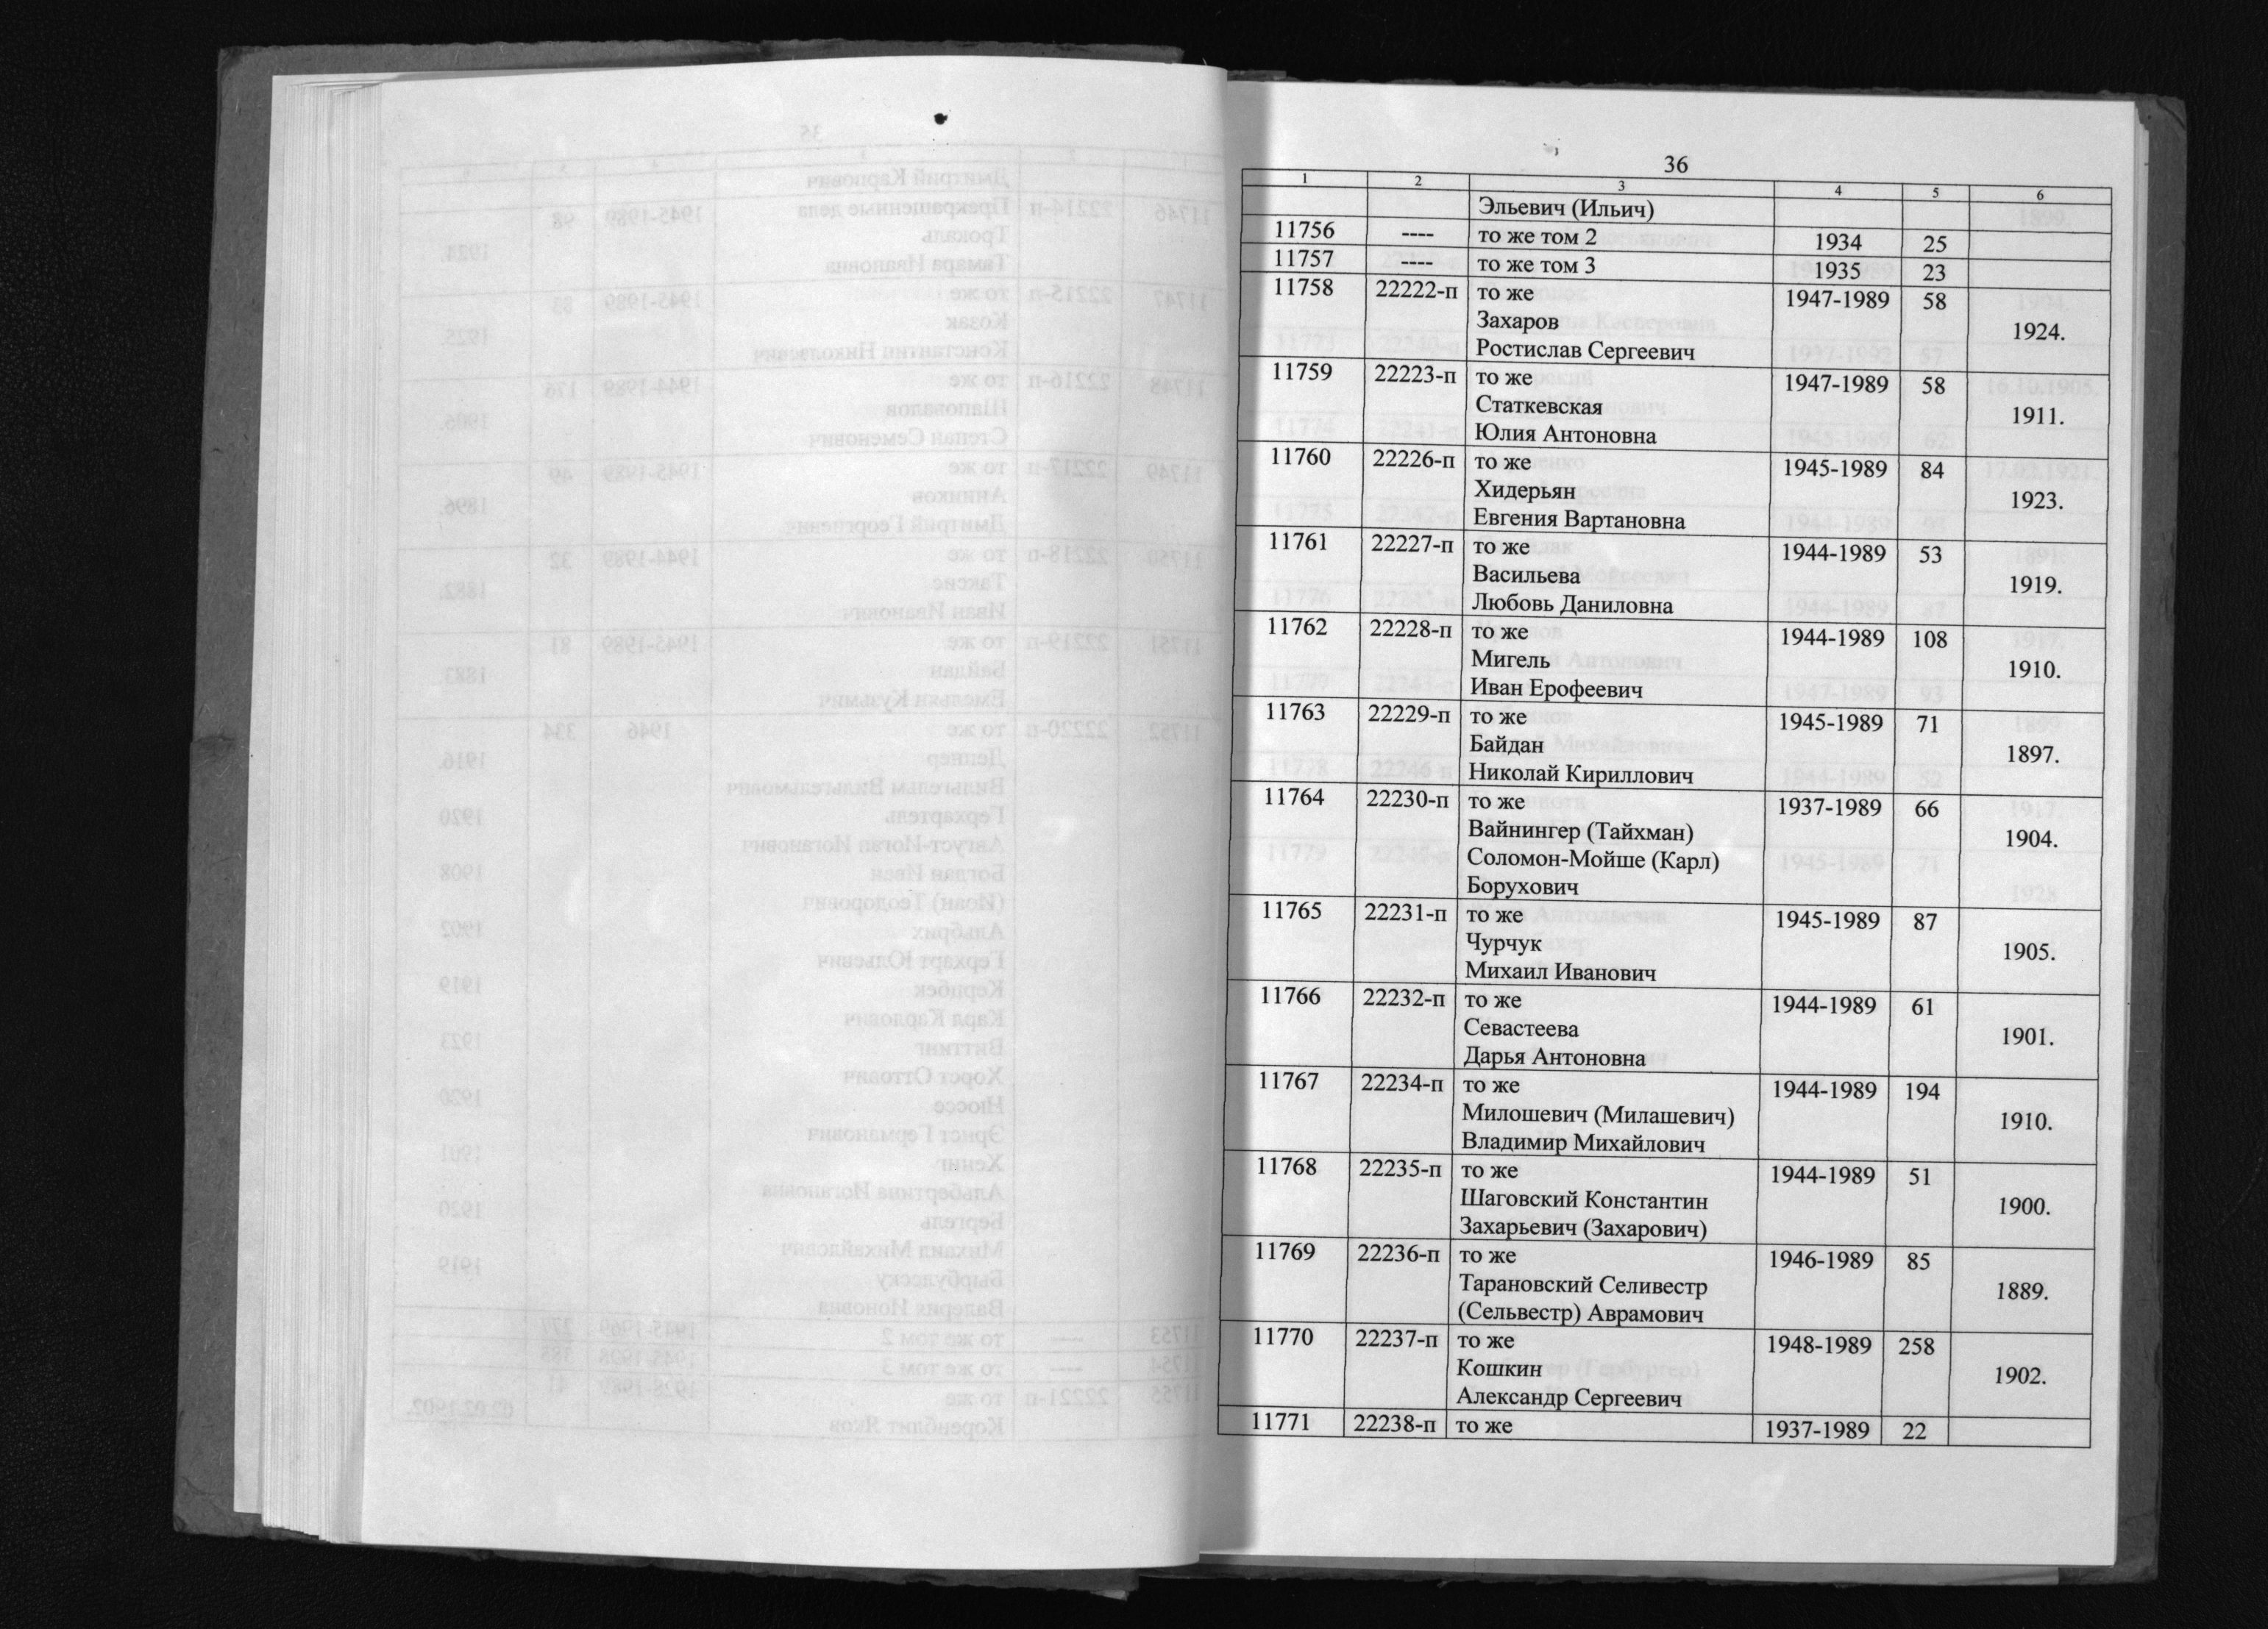 36
1 2 3 4 5 6
Эльевич (Ильич)
11756 ---- то же том 2 1934 25
11757 ---- то же том 3 1935 23
11758 22222-п то же 1947-1989 58
Захаров
1924.
Ростислав Сергеевич
11759 22223-п то же 1947-1989 58
Статкевская
1911.
Юлия Антоновна
11760 22226-п то же 1945-1989 84
Хидерьян
1923.
Евгения Вартановна
11761 22227-п то же 1944-1989 53
Васильева
1919.
Любовь Даниловна
11762 22228-п то же 1944-1989 108
Мигель
1910.
Иван Ерофеевич
11763 22229-п то же 1945-1989 71
Байдан
1897.
Николай Кириллович
11764 22230-п то же 1937-1989 66
Вайнингер (Тайхман)
1904.
Соломон-Мойше (Карл)
Борухович
11765 22231-п то же 1945-1989 87
Чурчук
1905.
Михаил Иванович
11766 22232-п то же 1944-1989 61
Севастеева
1901.
Дарья Антоновна
11767 22234-п то же 1944-1989 194
Милошевич (Милашевич)
1910.
Владимир Михайлович
11768 22235-п то же 1944-1989 51
Шаговский Константин
1900.
Захарьевич (Захарович)
11769 22236-п то же 1946-1989 85
Тарановский Селивестр
1889.
(Сельвестр) Аврамович
11770 22237-п то же 1948-1989 258
Кошкин
1902.
Александр Сергеевич
11771 22238-п то же 1937-1989 22